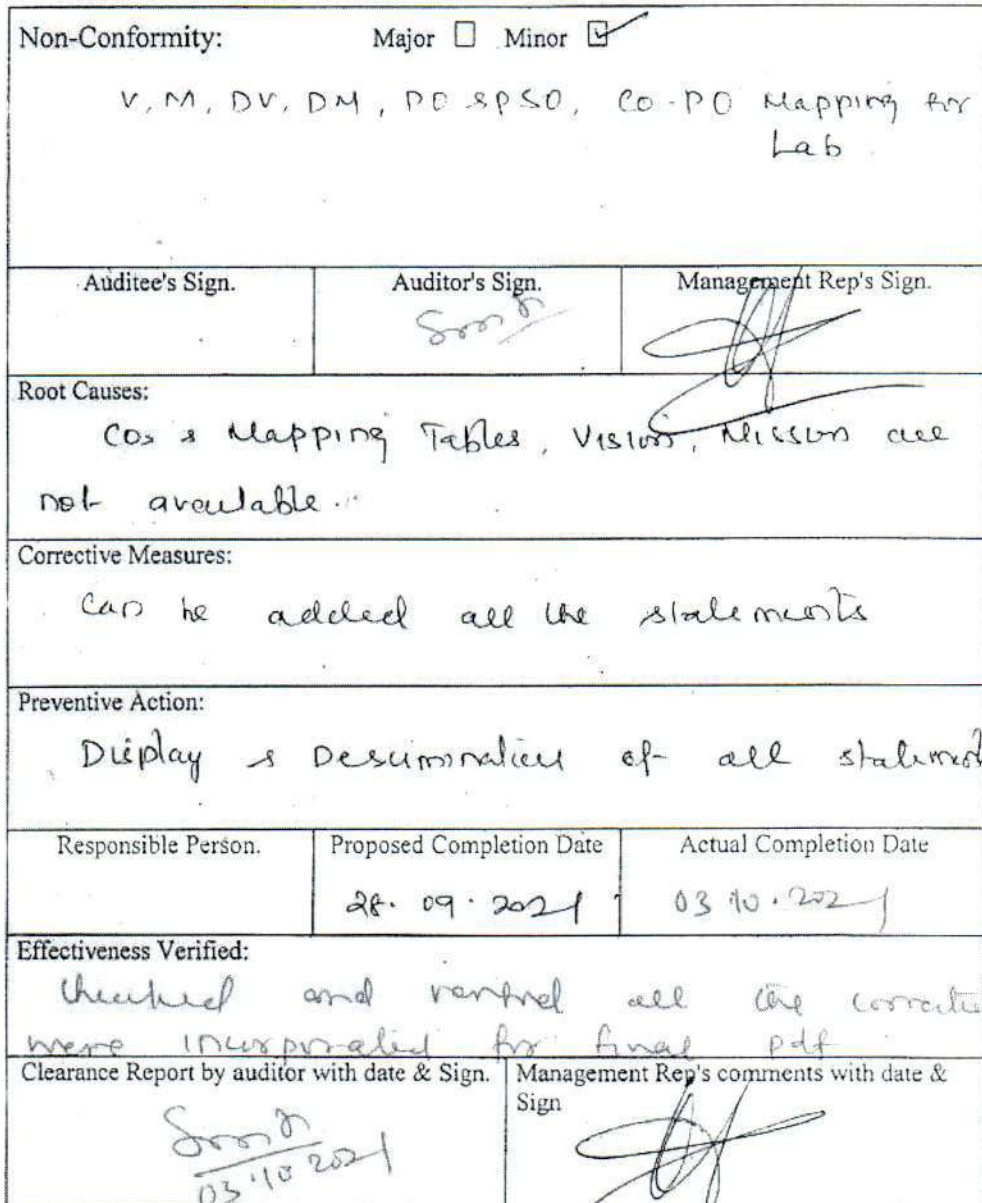 Non-Conformity: Major ☐ Minor ☑
V, M, DV, DM, PO & PSO, CO-PO Mapping for
Lab
Auditee's Sign. Auditor's Sign. Management Rep's Sign.
Root Causes:
COs & Mapping Tables, Vision, Mission are
not available.
Corrective Measures:
Can be added all the statements
Preventive Action:
Display & of all statement
Responsible Person. Proposed Completion Date Actual Completion Date
28.09.2021 03.10.2021
Effectiveness Verified:
Checked and verified all the
were incorporated for final pdf
Clearance Report by auditor with date & Sign. Management Rep's comments with date &
Sign
03.10.2021